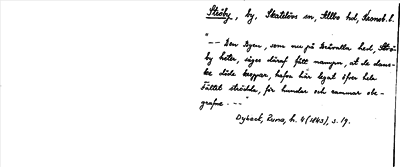 Ströby, by, Skatelövs sn, Allbo hd, Kronob. l.
"-- Den Byen, som nu på Bråvalla hed, Strö-
by heter, säges däraf fått namnet, at de dans-
ke döde kroppar, hafva här legat öfver hela
fältet strödde, för hundar och rammar obe-
grafne. --"
Dybeck, Runa, h. 4 (1843), s. 19.